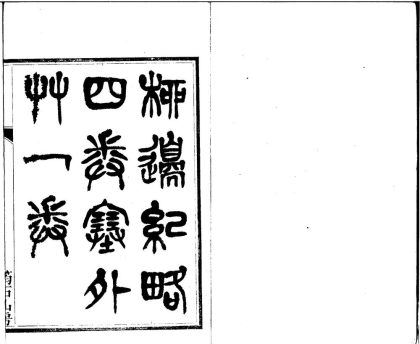 柳邊紀略
四卷塞外
艸一卷